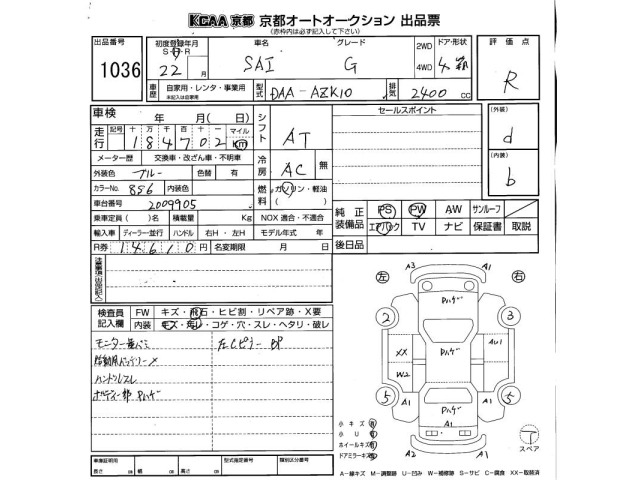 KCAA 京都 京都オートオークション 出品票
(赤枠内は必ず記入して下さい)
出品番号
1036
初度登録年月
S・H・R
22 月
車名
SAI
グレード
G
2WD
4WD
ドア・形状
4 箱
評価点
R
車歴
自家用・レンタ・事業用
未記入は自家用
型式
DAA-AZK10
排気
2400 CC
車検
年 月( 日)
走行
記号 十 万 千 百 十 一
184702
マイル
Km
シフト
AT
セールスポイント
(外装)
d
(内装)
b
メーター歴
交換車・改ざん車・不明車
外装色
ブルー
色替
有
冷房
AC
無
カラーNo.
8S6
内装色
燃料
ガソリン・軽油
( )
車台番号
2009905
乗車定員 ( )名
積載量
Kg
NOX 適合・不適合
輸入車
ディーラー・並行
ハンドル
右H・左H
モデル年式
年
R券
14610 円
名変期限
月 日
純正装備品
PS
PW
AW
サンルーフ
エアバック
TV
ナビ
保証書
取説
後日品
注意事項(出品店記入)
検査員記入欄
FW
キズ・飛石・ヒビ割・リペア跡・X要
内装
キズ・汚レ・コゲ・穴・スレ・ヘタリ・破レ
ハンドルスレ
左
右
A3
A1
Pハゲ
2
3
XX
W2
Pハゲ
AU1
A1
5
5
A1
A1
Pハゲ
A1
A2
A1
小キズ 有
小U 有
ホイールキズ 有
ドアミラーキズ 有
スペア
T
車庫証明用
長さ cm
幅 cm
高さ cm
型式指定番号
類別区分番号
A-線キズ M-調整跡 U-凹み W-補修跡 S-サビ C-腐食 XX-取替済